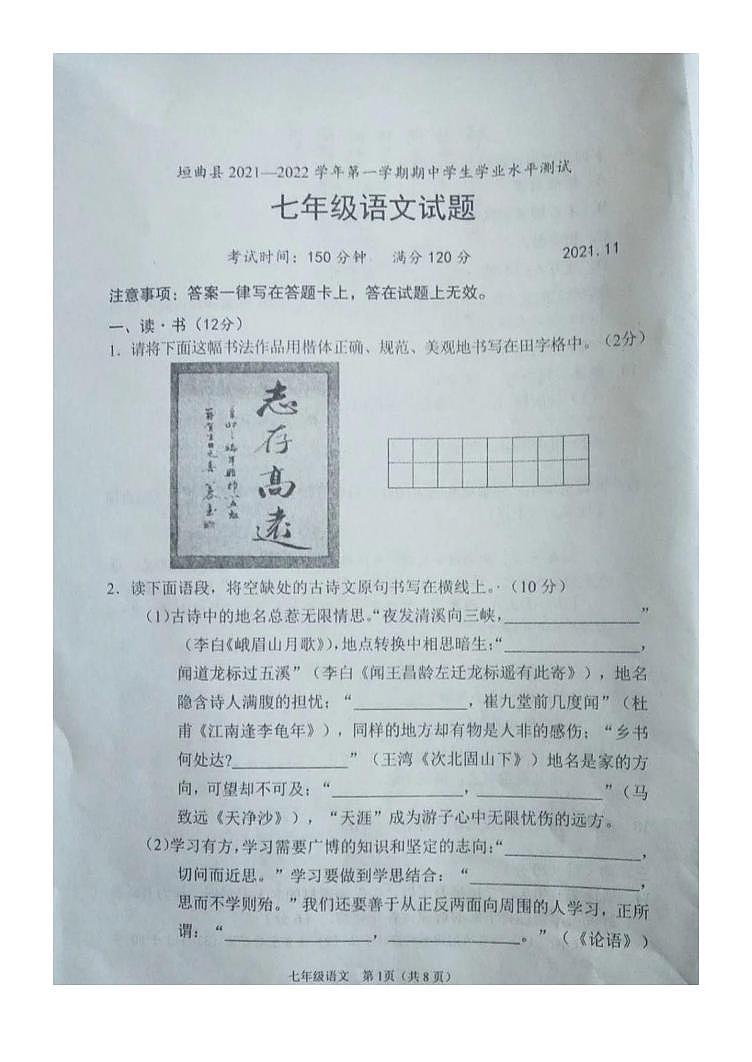 垣曲县2021—2022学年第一学期期中学生学业水平测试
七年级语文试题
考试时间：150分钟 满分120分 2021.11
注意事项：答案一律写在答题卡上，答在试题上无效。
一、读·书（12分）
1. 请将下面这幅书法作品用楷体正确、规范、美观地书写在田字格中。（2分）
志存高远
2. 读下面语段，将空缺处的古诗文原句书写在横线上。（10分）
(1)古诗中的地名总惹无限情思。“夜发清溪向三峡，________________”
（李白《峨眉山月歌》），地点转换中相思暗生；“________________，
闻道龙标过五溪”（李白《闻王昌龄左迁龙标遥有此寄》），地名
隐含诗人满腹的担忧；“______________，崔九堂前几度闻”（杜
甫《江南逢李龟年》），同样的地方却有物是人非的感伤；“乡书
何处达?______________”（王湾《次北固山下》）地名是家的方
向，可望却不可及；“________________，________________”（马
致远《天净沙》），“天涯”成为游子心中无限忧伤的远方。
(2)学习有方，学习需要广博的知识和坚定的志向；“________________，
切问而近思。”学习要做到学思结合：“____________________，
思而不学则殆。”我们还要善于从正反两面向周围的人学习，正所
谓：“__________________，________________。”（《论语》）
七年级语文 第1页（共8页）